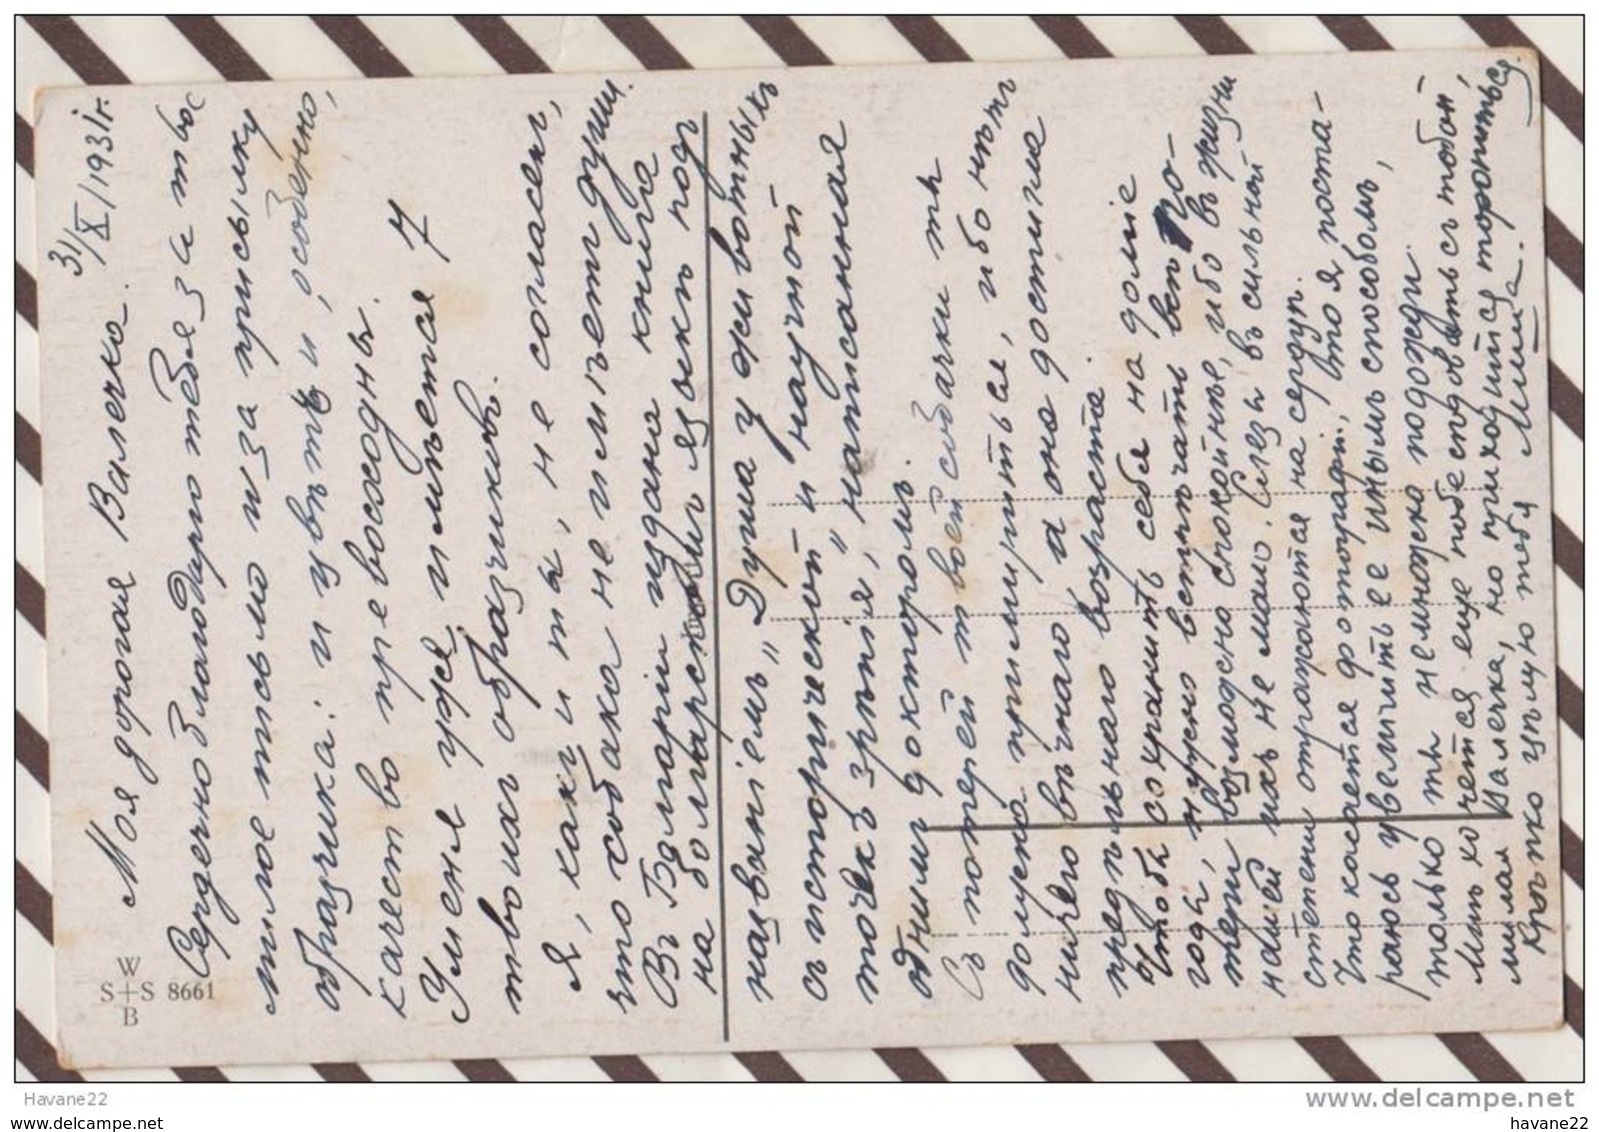 31/X/1931г.
Моя дорогая Валечка.
Сердечно благодарю тебя за твое
милое письмо и за присылку
образчика: и цвѣтъ и, особенно,
качество превосходны.
У меня уже имѣется 7
твоихъ образчиковъ.
Я, какъ и ты, не согласенъ,
что собака не имѣетъ души.
Въ Болгаріи издана книга
на болгарскомъ языкѣ подъ
названіемъ „Душа у животныхъ
съ исторической и научной
точекъ зрѣнія," написанная
однимъ докторомъ.
Съ потерей твоей собачки ты
должна примириться, ибо нѣтъ
ничего вѣчнаго а она достигла
предѣльнаго возраста.
Чтобы сохранить себя на долгіе
годы, нужно встрѣчать всѣ по-
тери возможно спокойнѣе, ибо въ жизни
нашей ихъ не мало. Слезы въ сильной
степени отражаются на сердцѣ.
Что касается фотографіи, то я поста-
раюсь увеличить ее инымъ способомъ,
только ты немножко подожди.
Мнѣ хочется еще побесѣдовать съ тобой,
милая Валечка, но приходится торопиться.
Крѣпко цѣлую тебя Миша.
W
S+S 8661
B
Havane22
www.delcampe.net
Havane22
havane22